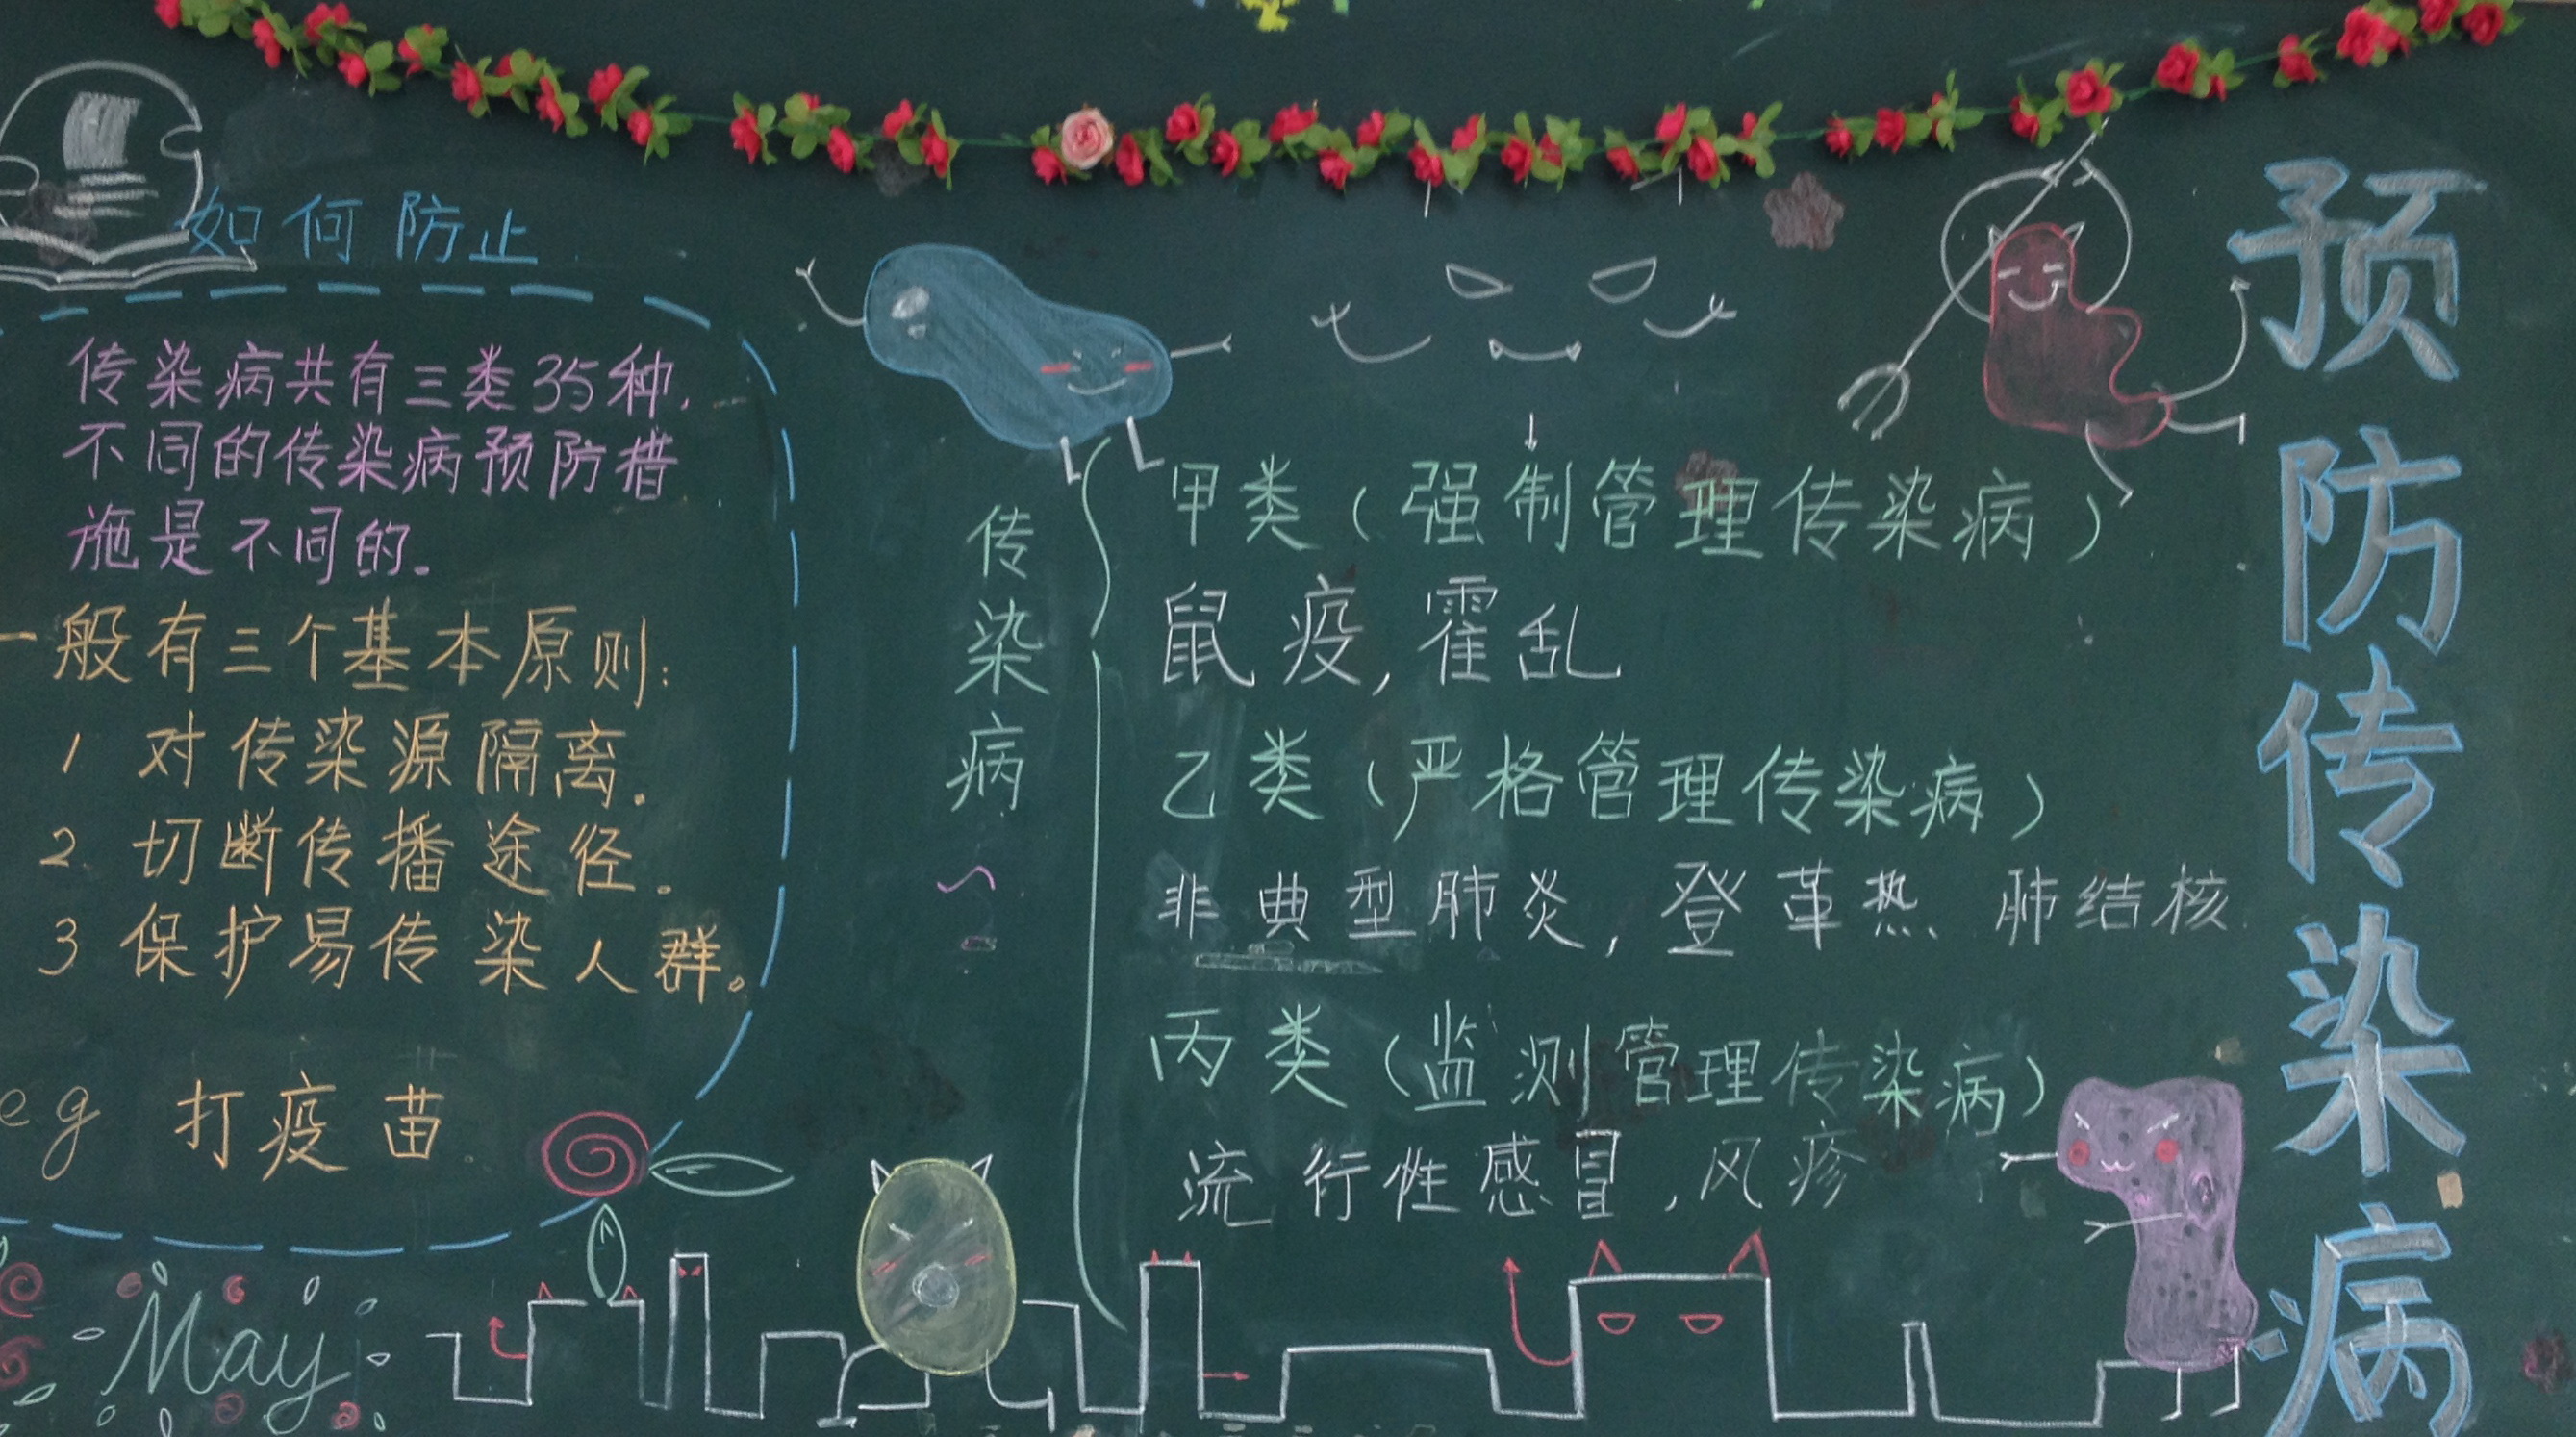 预防传染病
如何防止
传染病共有三类35种,
不同的传染病预防措
施是不同的.
一般有三个基本原则:
1 对传染源隔离.
2. 切断传播途径.
3 保护易传染人群。
eg 打疫苗.
May
传染病
甲类(强制管理传染病)
鼠疫,霍乱
乙类(严格管理传染病)
非典型肺炎,登革热、肺结核.
丙类(监测管理传染病)
流行性感冒,风疹